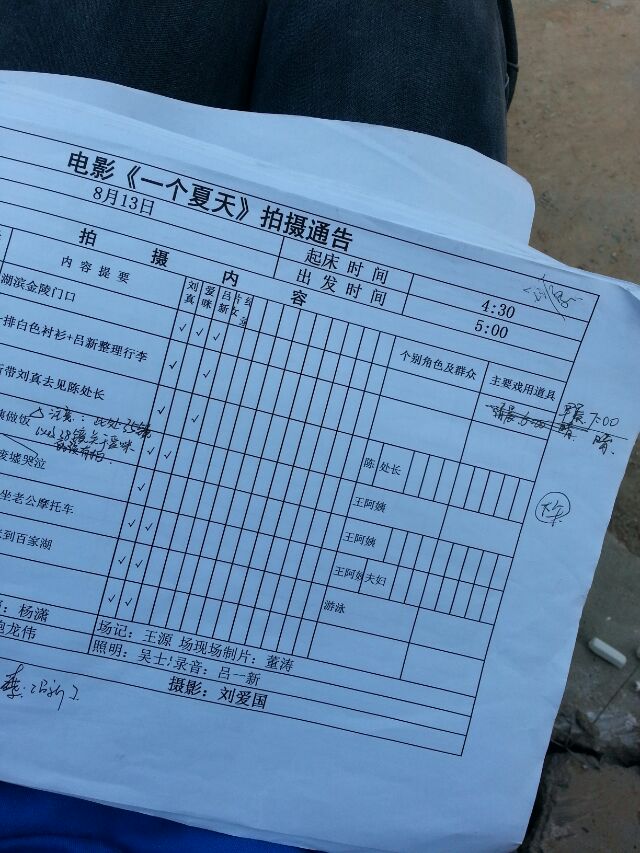 电影《一个夏天》拍摄通告
8月13日
起床时间 4:30
拍摄内容 出发时间 5:00
内容提要 刘真 爱咪 吕新 个别角色及群众 主要戏用道具
湖滨金陵门口 ✓ ✓ ✓
排白色衬衫+吕新整理行李 ✓ ✓
带刘真去见陈处长 ✓ ✓ 陈 处长
做饭 ✓ ✓ 王阿姨
△注意:
7:00
废墟哭泣 ✓ 王阿姨
坐老公摩托车 ✓ 王阿姨夫妇
到百家湖 ✓ ✓ 游泳
✓ ✓
：杨潇 场记：王源 场现场制片：董涛
龙伟 照明：吴士 录音：吕一新
摄影：刘爱国